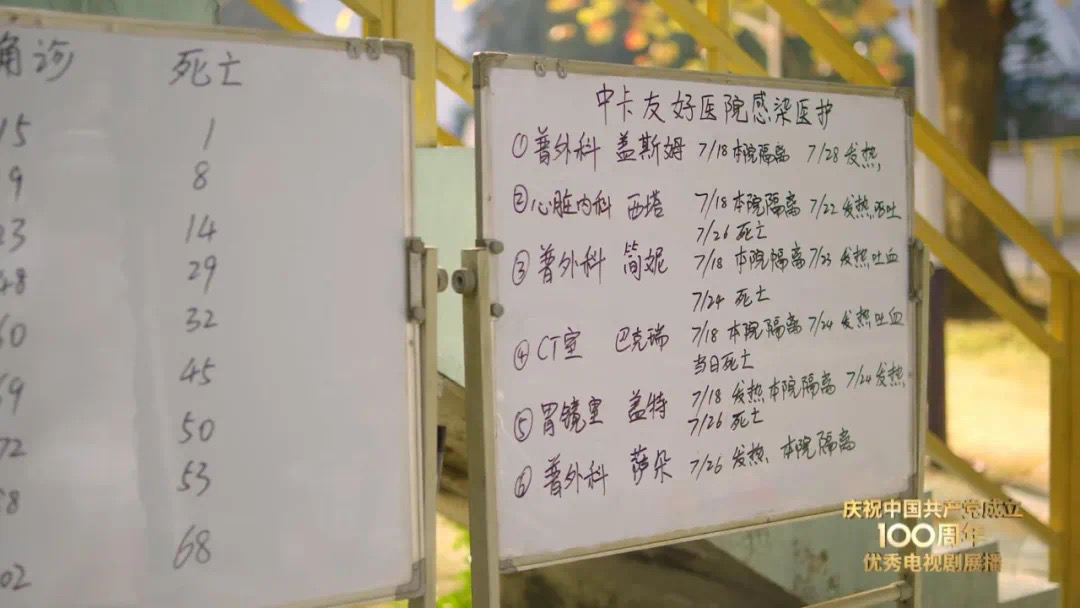 诊 死亡
15 1
9 8
23 14
48 29
60 32
69 45
72 50
53
02 68
中卡友好医院感染医护
①普外科 盖斯姆 7/18 本院隔离 7/28 发热,
②心脏内科 西塔 7/18 本院隔离 7/22 发热呕吐
7/26 死亡
③普外科 简妮 7/18 本院隔离 7/23 发热吐血
7/24 死亡
④CT室 巴克瑞 7/18 本院隔离 7/24 发热吐血
当日死亡
⑤胃镜室 盖特 7/18 发热本院隔离 7/24 发热,
7/26 死亡
⑥普外科 萨朵 7/26 发热、本院隔离
庆祝中国共产党成立
100周年
优秀电视剧展播